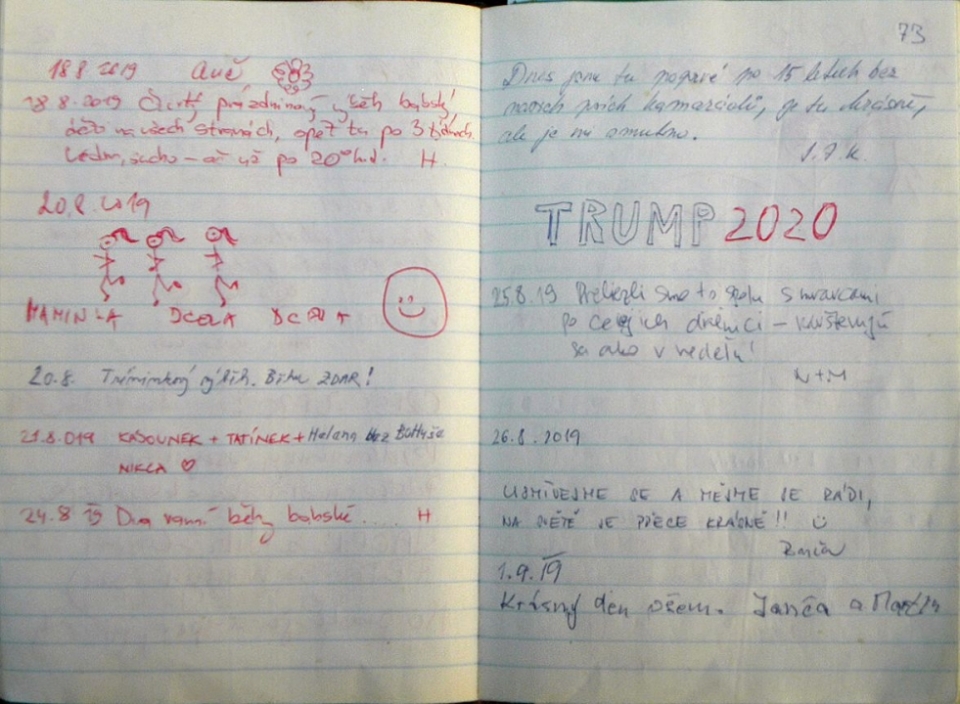 18.8 2019 Aně
18.8.2019 Čtvrtý prázdninový běh babský,
děti na všech stranách, opět tu po 3 týdnech.
Vedro, sucho – ač už po 20° hod. H.
20.8.2019
MAMINKA DCERA DCERA
20.8. Tréninkový výběh. Běhu ZDAR!
21.8.019 KAŠOUNEK + TATÍNEK + Helena bez
NIKČA ♡
24.8 19 Dva ranní běhy babské.... H
73
Dnes jsme tu poprvé po 15 letech bez
našich psích kamarádů, je tu krásně,
ale je mi smutno.
TRUMP 2020
25.8.19 Preliezli sme to spolu s mravcami
po celej ich dialnici –
sa ako v nedeľu!
N+M
26.8.2019
USMÍVEJME SE A MĚJME SE RÁDI,
NA SVĚTĚ JE PŘECE KRÁSNĚ!! ☺
1.9.19
Krásný den všem. Janča a Martin